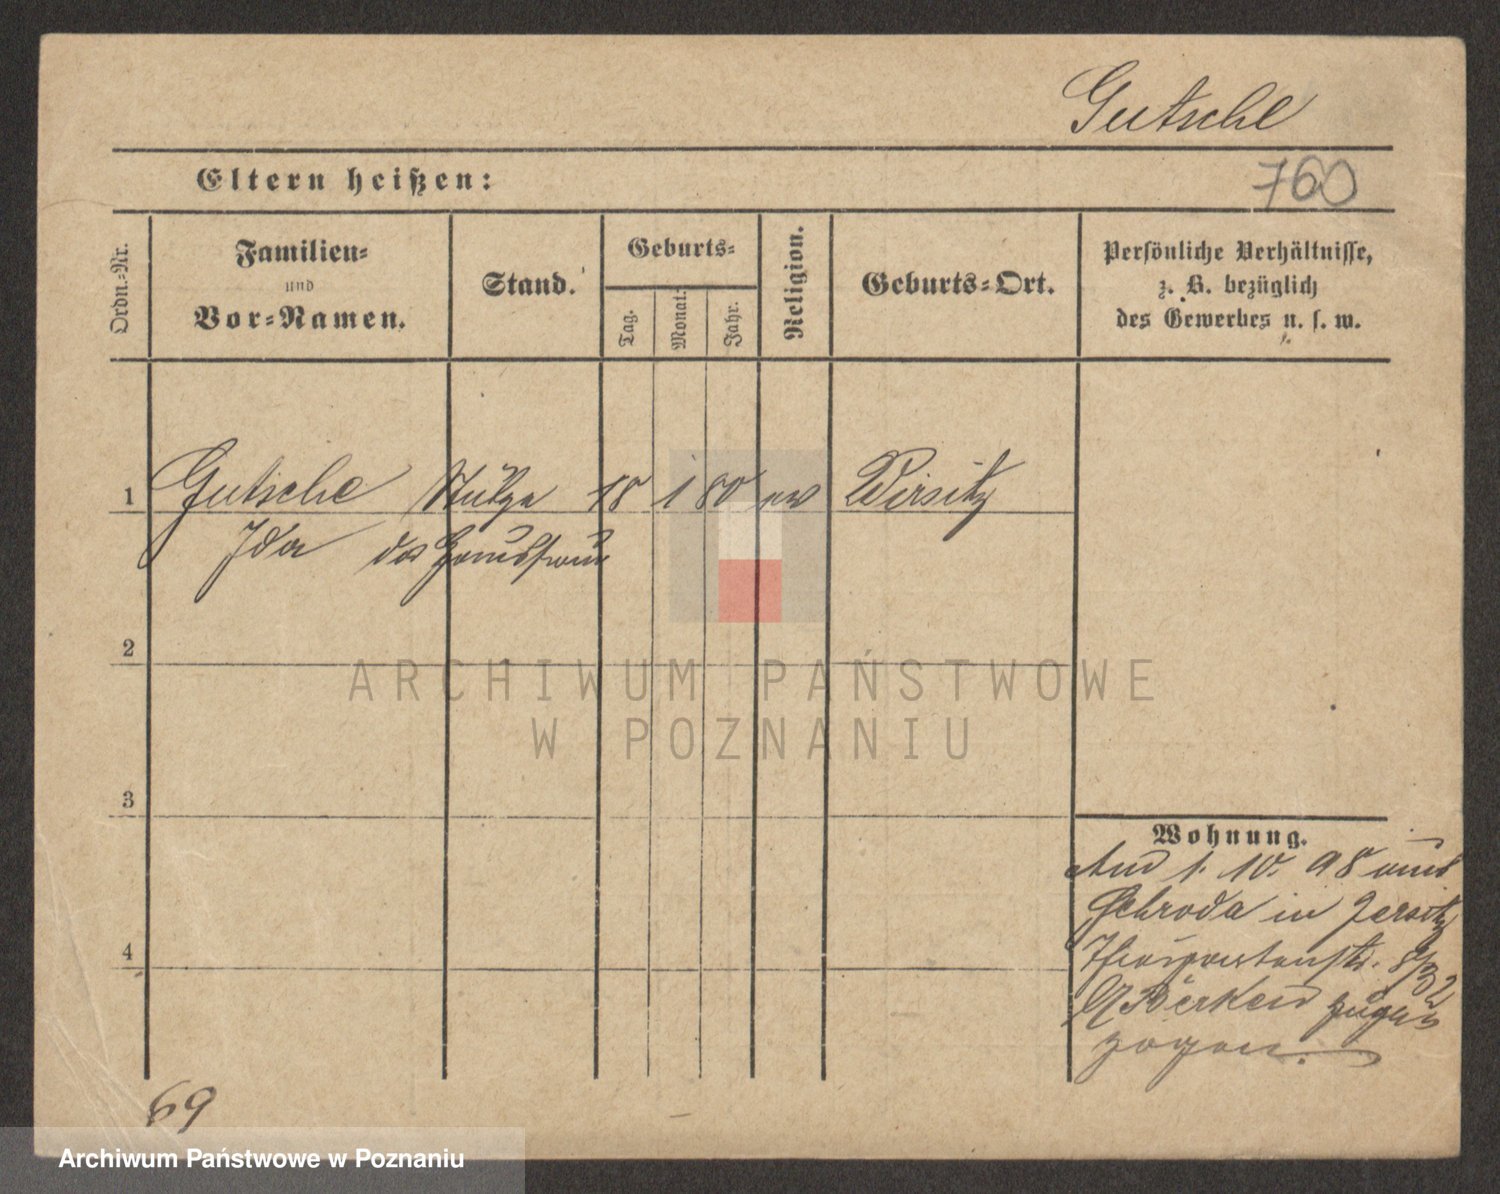 Gutsche
Eltern heißen:
760
Ordn.-Nr.
Familien-
und
Vor-Namen.
Stand.
Geburts-
Tag.
Monat.
Jahr.
Religion.
Geburts-Ort.
Persönliche Verhältnisse,
z. B. bezüglich
des Gewerbes u. s. w.
1 Gutsche Stütze 18 1 80 ev Wirsitz
Ida der Hausfrau
2
ARCHIWUM PAŃSTWOWE
W POZNANIU
3
Wohnung.
Am 1. 10. 98 aus
Schroda in Jersitz
8/32
zuge
4
zogen.
69
Archiwum Państwowe w Poznaniu